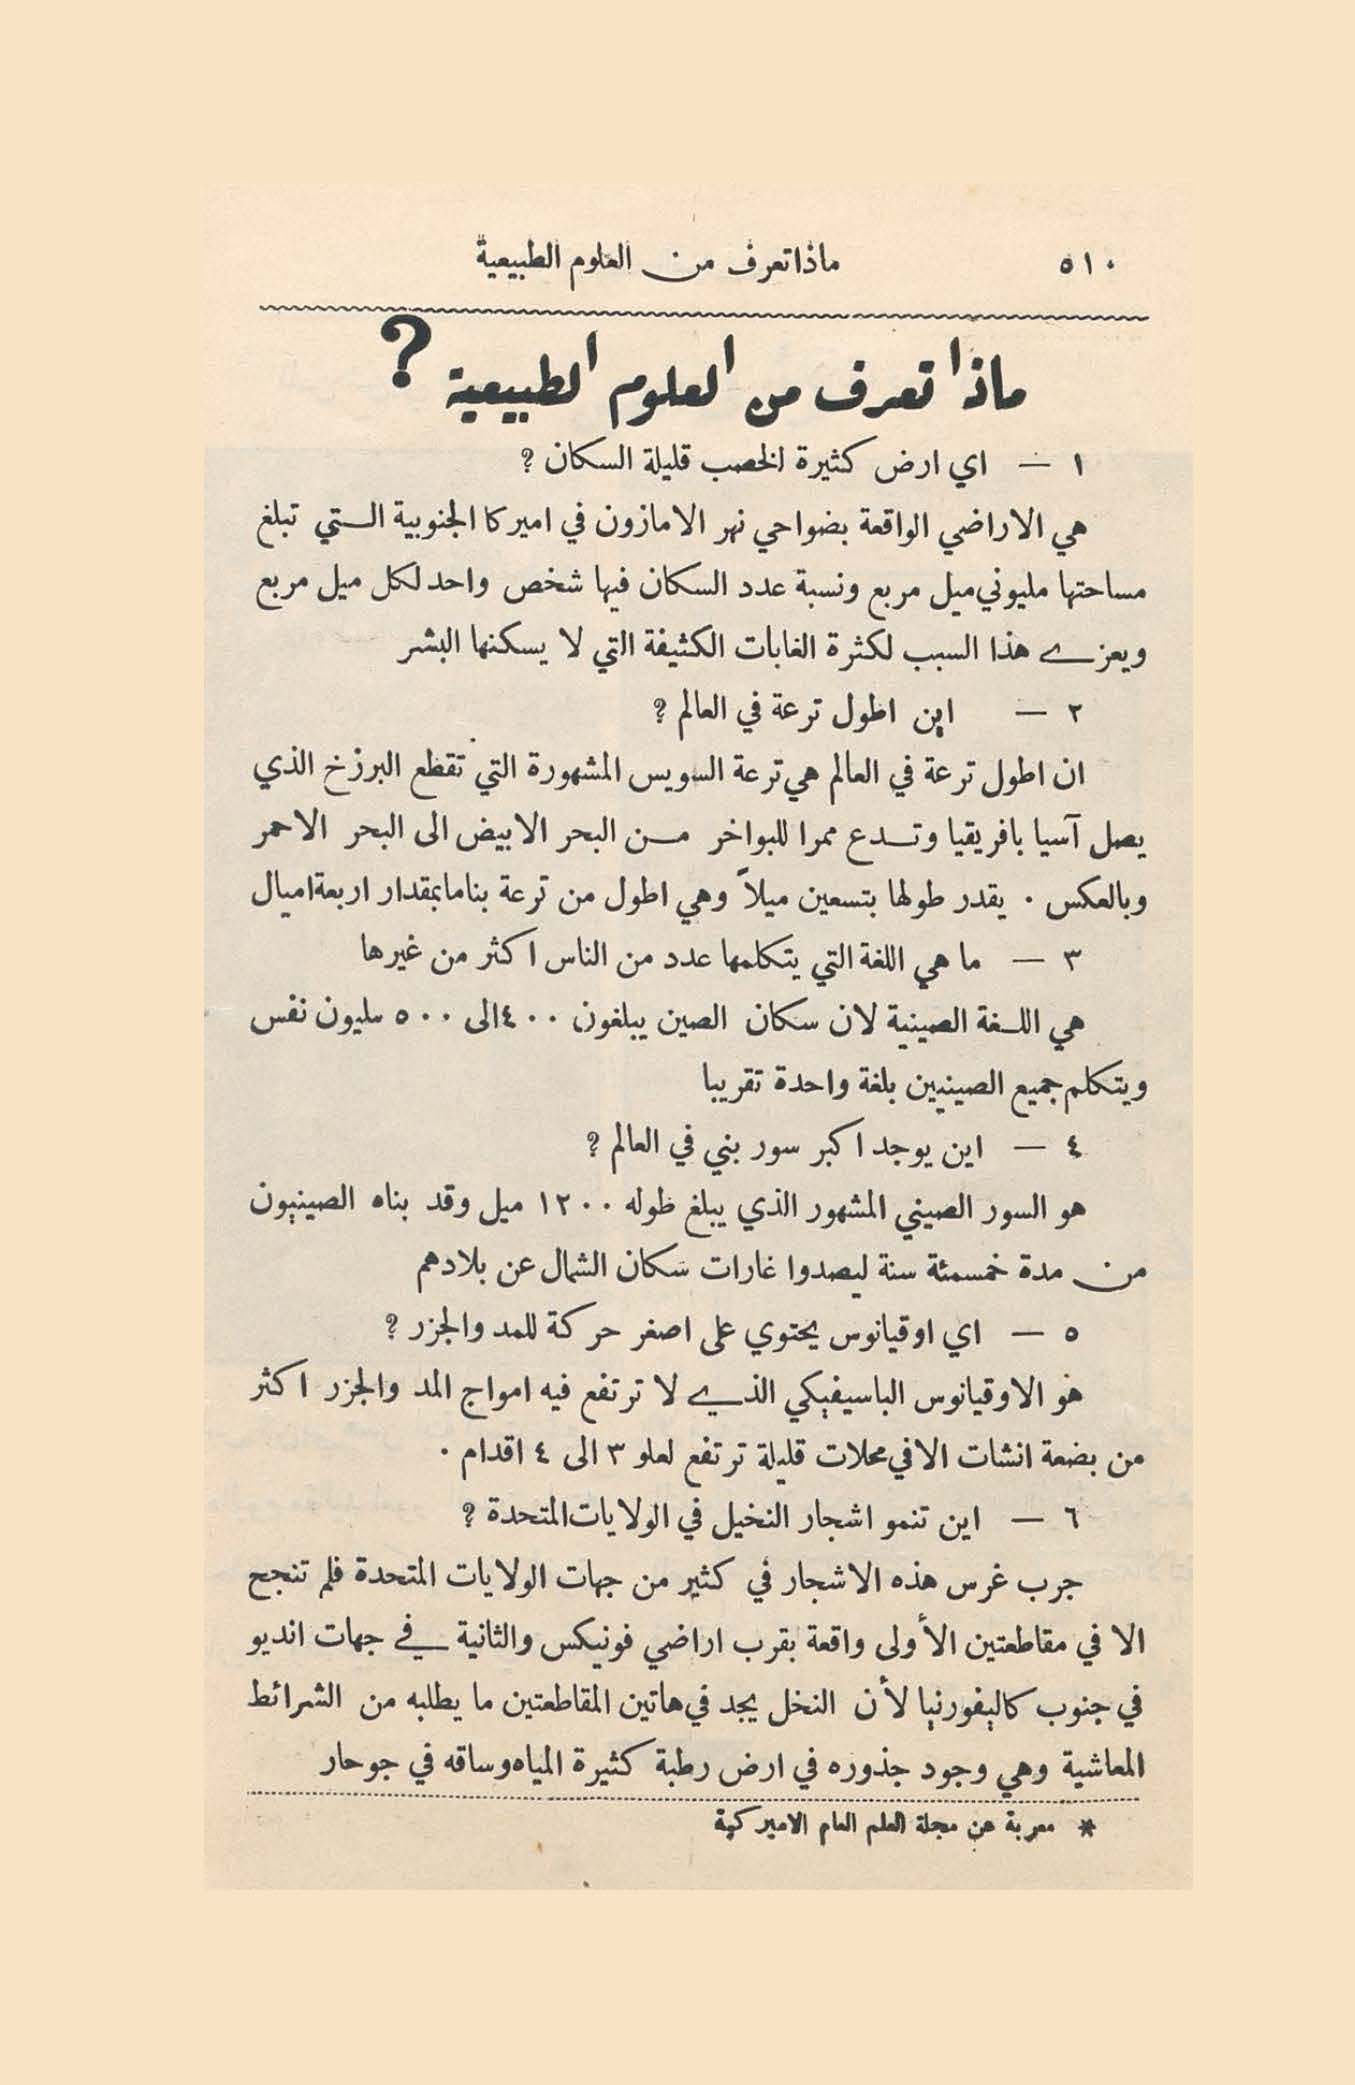 ٥١٠ ماذا تعرف من العلوم الطبيعية
ماذا تعرف من العلوم الطبيعية ؟
١ — اي ارض كثيرة الخصب قليلة السكان ؟
هي الاراضي الواقعة بضواحي نهر الامازون في اميركا الجنوبية التي تبلغ
مساحتها مليوني ميل مربع ونسبة عدد السكان فيها شخص واحد لكل ميل مربع
ويعزے هذا السبب لكثرة الغابات الكثيفة التي لا يسكنها البشر
٢ — اين اطول ترعة في العالم ؟
ان اطول ترعة في العالم هي ترعة السويس المشهورة التي تقطع البرزخ الذي
يصل آسيا بافريقيا وتدع ممرا للبواخر من البحر الابيض الى البحر الاحمر
وبالعكس . يقدر طولها بتسعين ميلاً وهي اطول من ترعة بناما بمقدار اربعة اميال
٣ — ما هي اللغة التي يتكلمها عدد من الناس اكثر من غيرها
هي اللغة الصينية لان سكان الصين يبلغون ٤٠٠ الى ٥٠٠ مليون نفس
ويتكلم جميع الصينيين بلغة واحدة تقريبا
٤ — اين يوجد اكبر سور بني في العالم ؟
هو السور الصيني المشهور الذي يبلغ طوله ١٢٠٠ ميل وقد بناه الصينيون
من مدة خمسمئة سنة ليصدوا غارات سكان الشمال عن بلادهم
٥ — اي اوقيانوس يحتوي على اصغر حركة للمد والجزر ؟
هو الاوقيانوس الباسيفيكي الذي لا ترتفع فيه امواج المد والجزر اكثر
من بضعة انشات الا في محلات قليلة ترتفع لعلو ٣ الى ٤ اقدام .
٦ — اين تنمو اشجار النخيل في الولايات المتحدة ؟
جرب غرس هذه الاشجار في كثير من جهات الولايات المتحدة فلم تنجح
الا في مقاطعتين الأولى واقعة بقرب اراضي فونيكس والثانية في جهات انديو
في جنوب كاليفورنيا لأن النخل يجد في هاتين المقاطعتين ما يطلبه من الشرائط
المعاشية وهي وجود جذوره في ارض رطبة كثيرة المياه وساقه في جو حار
* معربة عن مجلة العلم العام الاميركية